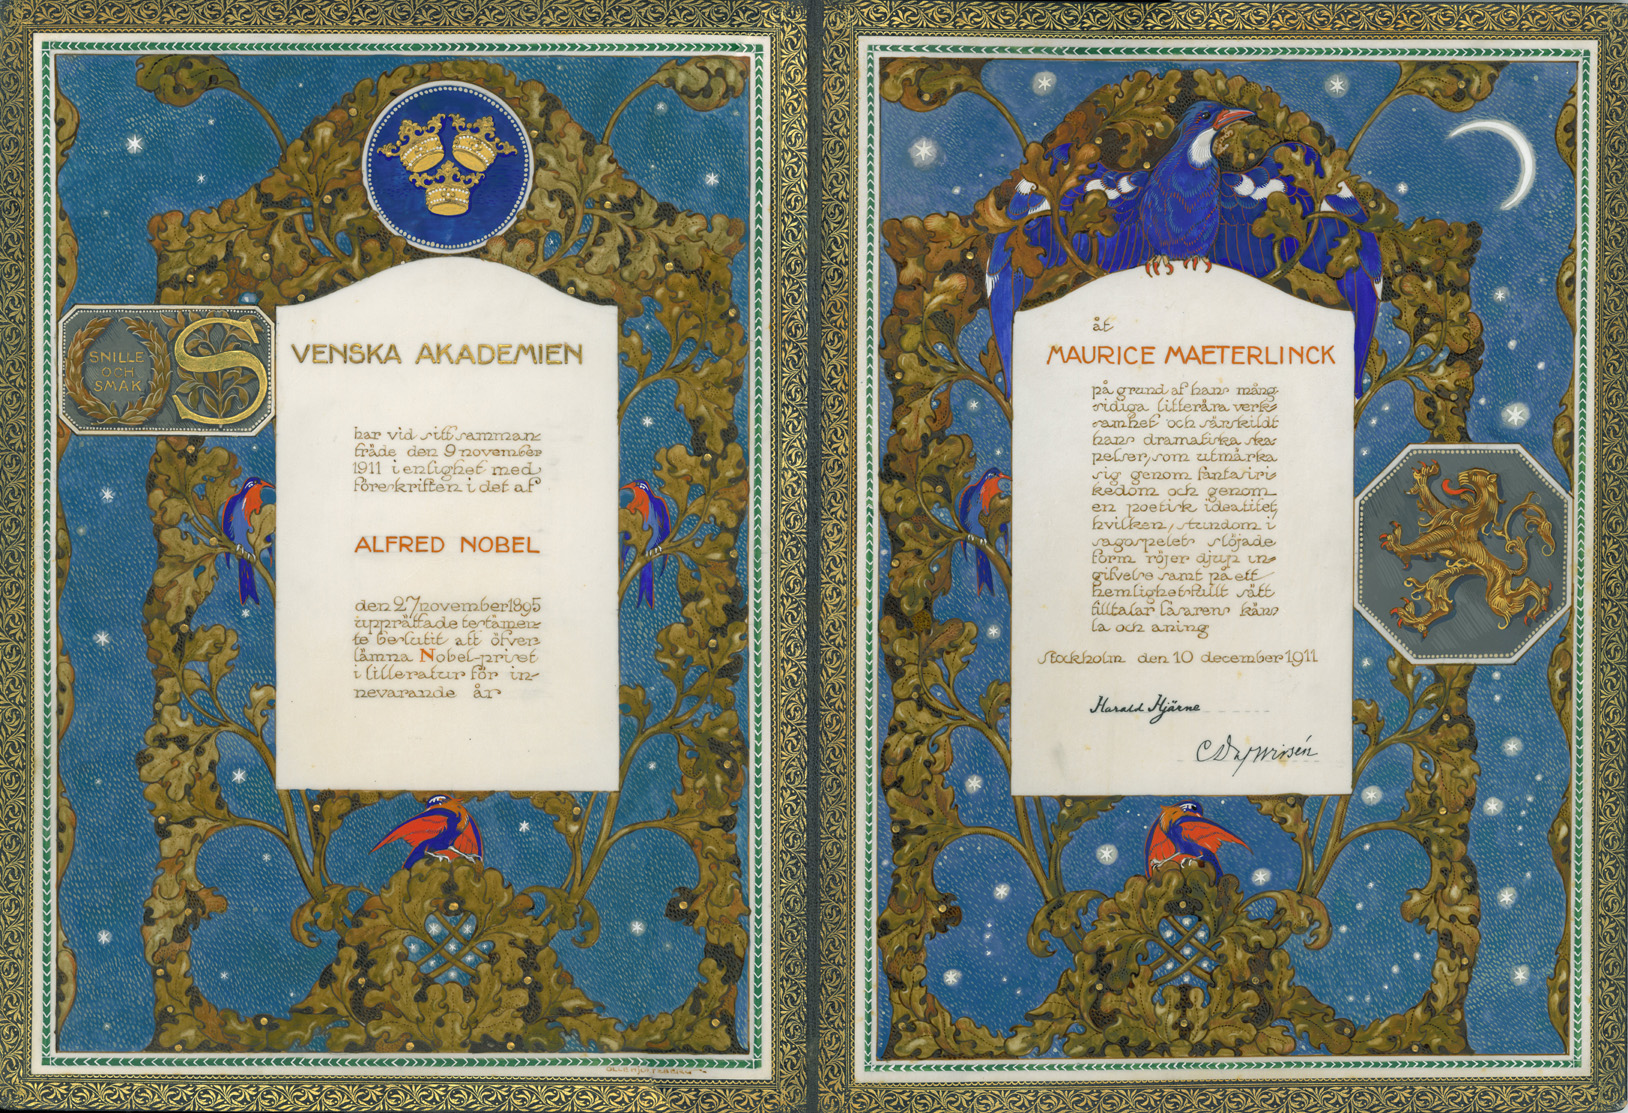 SNILLE
OCH
SMAK
SVENSKA AKADEMIEN
har vid sitt samman-
träde den 9 november
1911 i enlighet med
föreskriften i det af
ALFRED NOBEL
den 27 november 1895
upprättade testamen-
te beslutit att öfver-
lämna Nobel-priset
i litteratur för in-
nevarande år
åt
MAURICE MAETERLINCK
på grund af hans mång-
sidiga litterära verk-
samhet och särskildt
hans dramatiska ska-
pelser, som utmärka
sig genom fantasiri-
kedom och genom
en poetisk idealitet,
hvilken, stundom i
sagospelets slöjade
form röjer djup in-
gifvelse samt på ett
hemlighetsfullt sätt
tilltalar läsarens käns-
la och aning
Stockholm den 10 december 1911
Harald Hjärne
C D af Wirsén